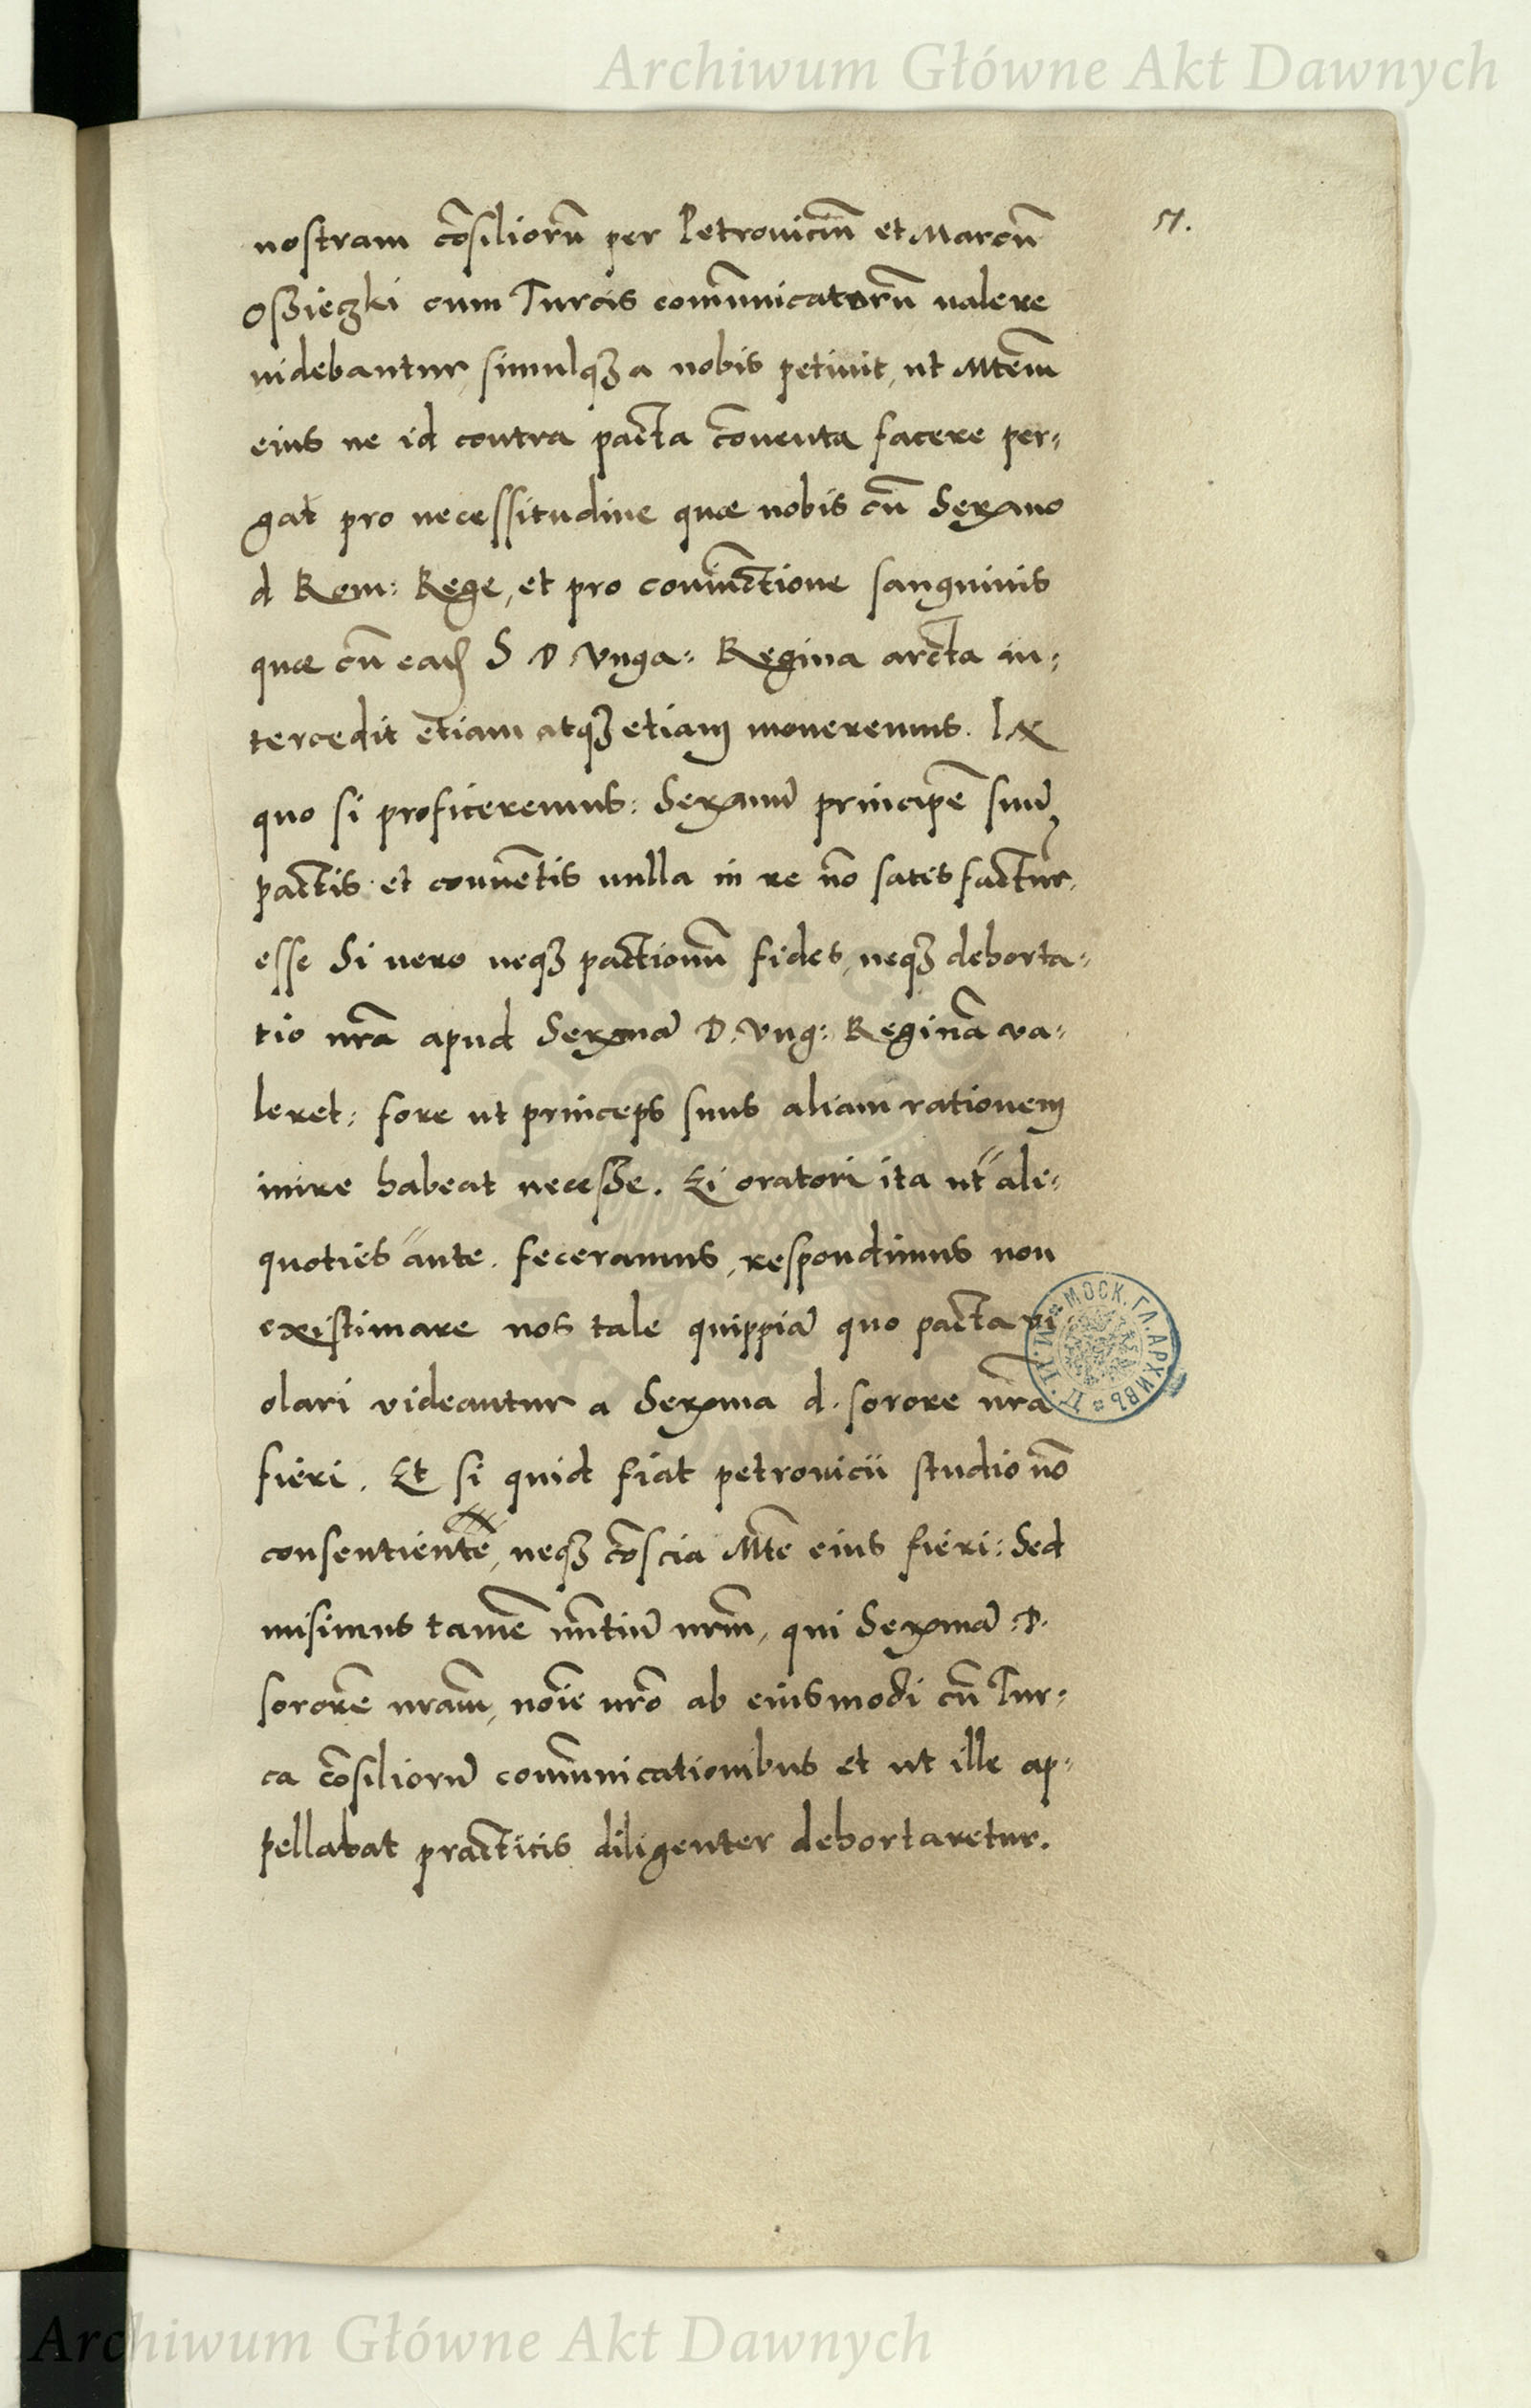 Archiwum Główne Akt Dawnych
51.
nostram cōsiliorū per Petrouiciū et Marcū
Oßieczki cum Turcis com̄unicatorū ualere
uidebantur, simulqȝ a nobis petiuit, ut Mtēm
eius ne id contra pacta cōuenta facere per-
gat pro necessitudine quæ nobis cū Serxmo
d Rom: Rege, et pro coniūctione sanguinis
quæ cū eadē S D Vnga: Regina arcta in-
tercedit etiam atqȝ etiam moueremus. In
quo si proficeremus: Serxmū principē suū
pactis et conuētis nulla in re nō satis factur.
esse Si uero neqȝ pactionū fides, neqȝ dehorta-
tio nrā apud Serxmā D. Vng: Reginā va-
leret: fore ut princeps suus aliam rationem
inire habeat neceße. Ei oratori ita ut ali-
quoties ante. feceramus, respondimus non
existimare nos tale quippiā quo pacta vi
olari videantur a Serxma d. sorore nrā
fieri. Et si quid fiat petrouicii studio nō
consentiente, neqȝ cōscia Mte eius fieri: Sed
misimus tamē nūtiū nrm̄, qui Serxmā D.
sororē nrām, noīe nrō ab eiusmodi cū Tur-
ca cōsiliorū com̄unicationibus et ut ille ap-
pellabat practicis diligenter dehortaretur.
МОСК. ГЛ. АРХИВЪ
Archiwum Główne Akt Dawnych